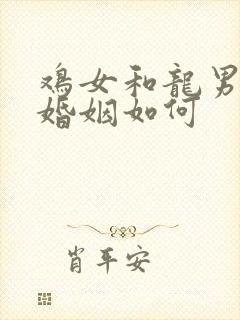 鸡女和龍男
婚姻如何
肖平安